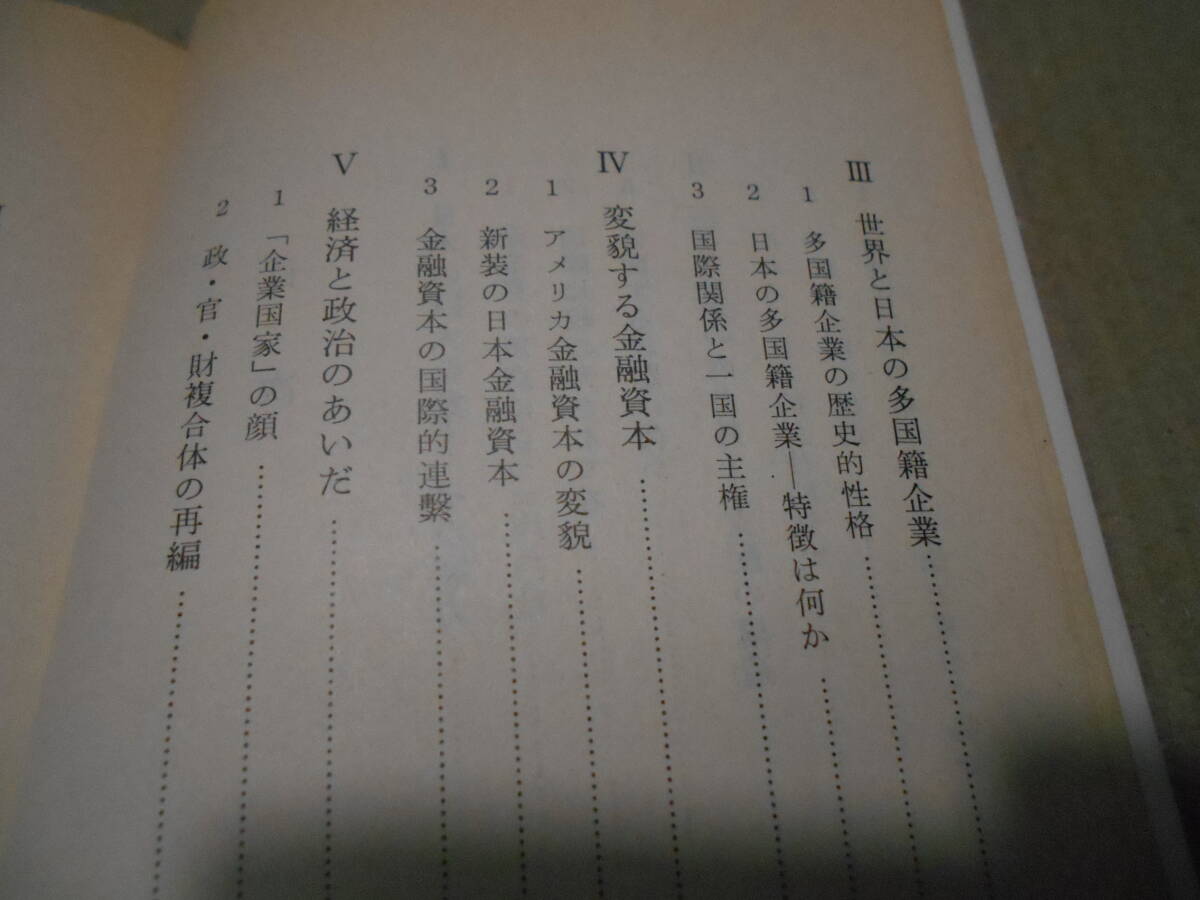 Ⅲ 世界と日本の多国籍企業
1 多国籍企業の歴史的性格
2 日本の多国籍企業──特徴は何か
3 国際関係と一国の主権
Ⅳ 変貌する金融資本
1 アメリカ金融資本の変貌
2 新装の日本金融資本
3 金融資本の国際的連繫
Ⅴ 経済と政治のあいだ
1 「企業国家」の顔
2 政・官・財複合体の再編